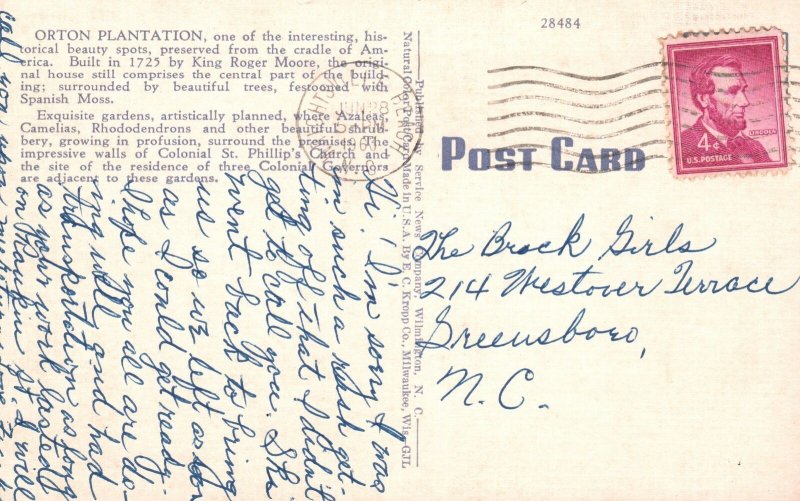 28484
ORTON PLANTATION, one of the interesting, his-
torical beauty spots, preserved from the cradle of Am-
erica. Built in 1725 by King Roger Moore, the origi-
nal house still comprises the central part of the build-
ing; surrounded by beautiful trees, festooned with
Spanish Moss.
Exquisite gardens, artistically planned, where Azaleas,
Camelias, Rhododendrons and other beautiful shrub-
bery, growing in profusion, surround the premises. The
impressive walls of Colonial St. Phillip's Church and
the site of the residence of three Colonial Governors
are adjacent to these gardens.
Published by Service News Company, Wilmington, N. C.
Natural Color Post Card Made in U. S. A. By E. C. Kropp Co., Milwaukee, Wis.-GJL
POST CARD
4¢
LINCOLN
U.S. POSTAGE
JUN 28
Hi! I'm sorry I was
in such a rush get-
ting off that I didn't
get to call you. She
went back to bring
us so we left as soon
as I could get ready.
Hope you all are do-
ing well and had
transportation as long
as your work lasted
on Rankin St. I will
call you when
The Brock Girls
214 Westover Terrace
Greensboro,
N. C.